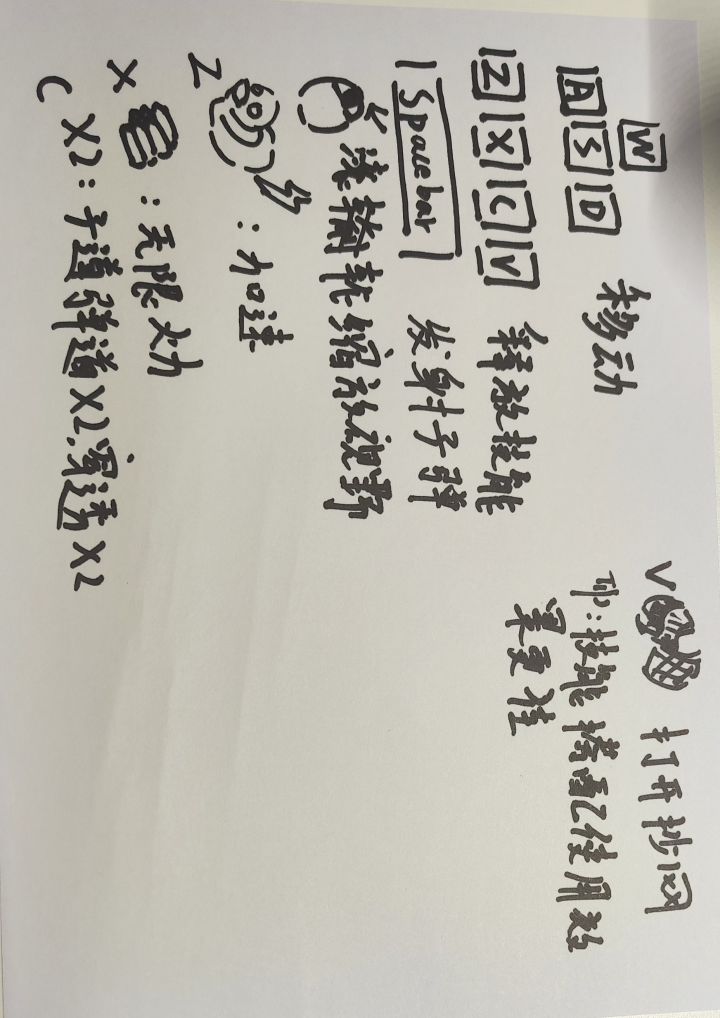 W
A S D 移动
Z X C V 释放技能
Spacebar 发射子弹
滚轮缩放视野
Z : 加速
X : 无限火力
C X2: 子弹道X2,穿透X2
V 打开抄网
PS:技能搭配使用效
果更佳